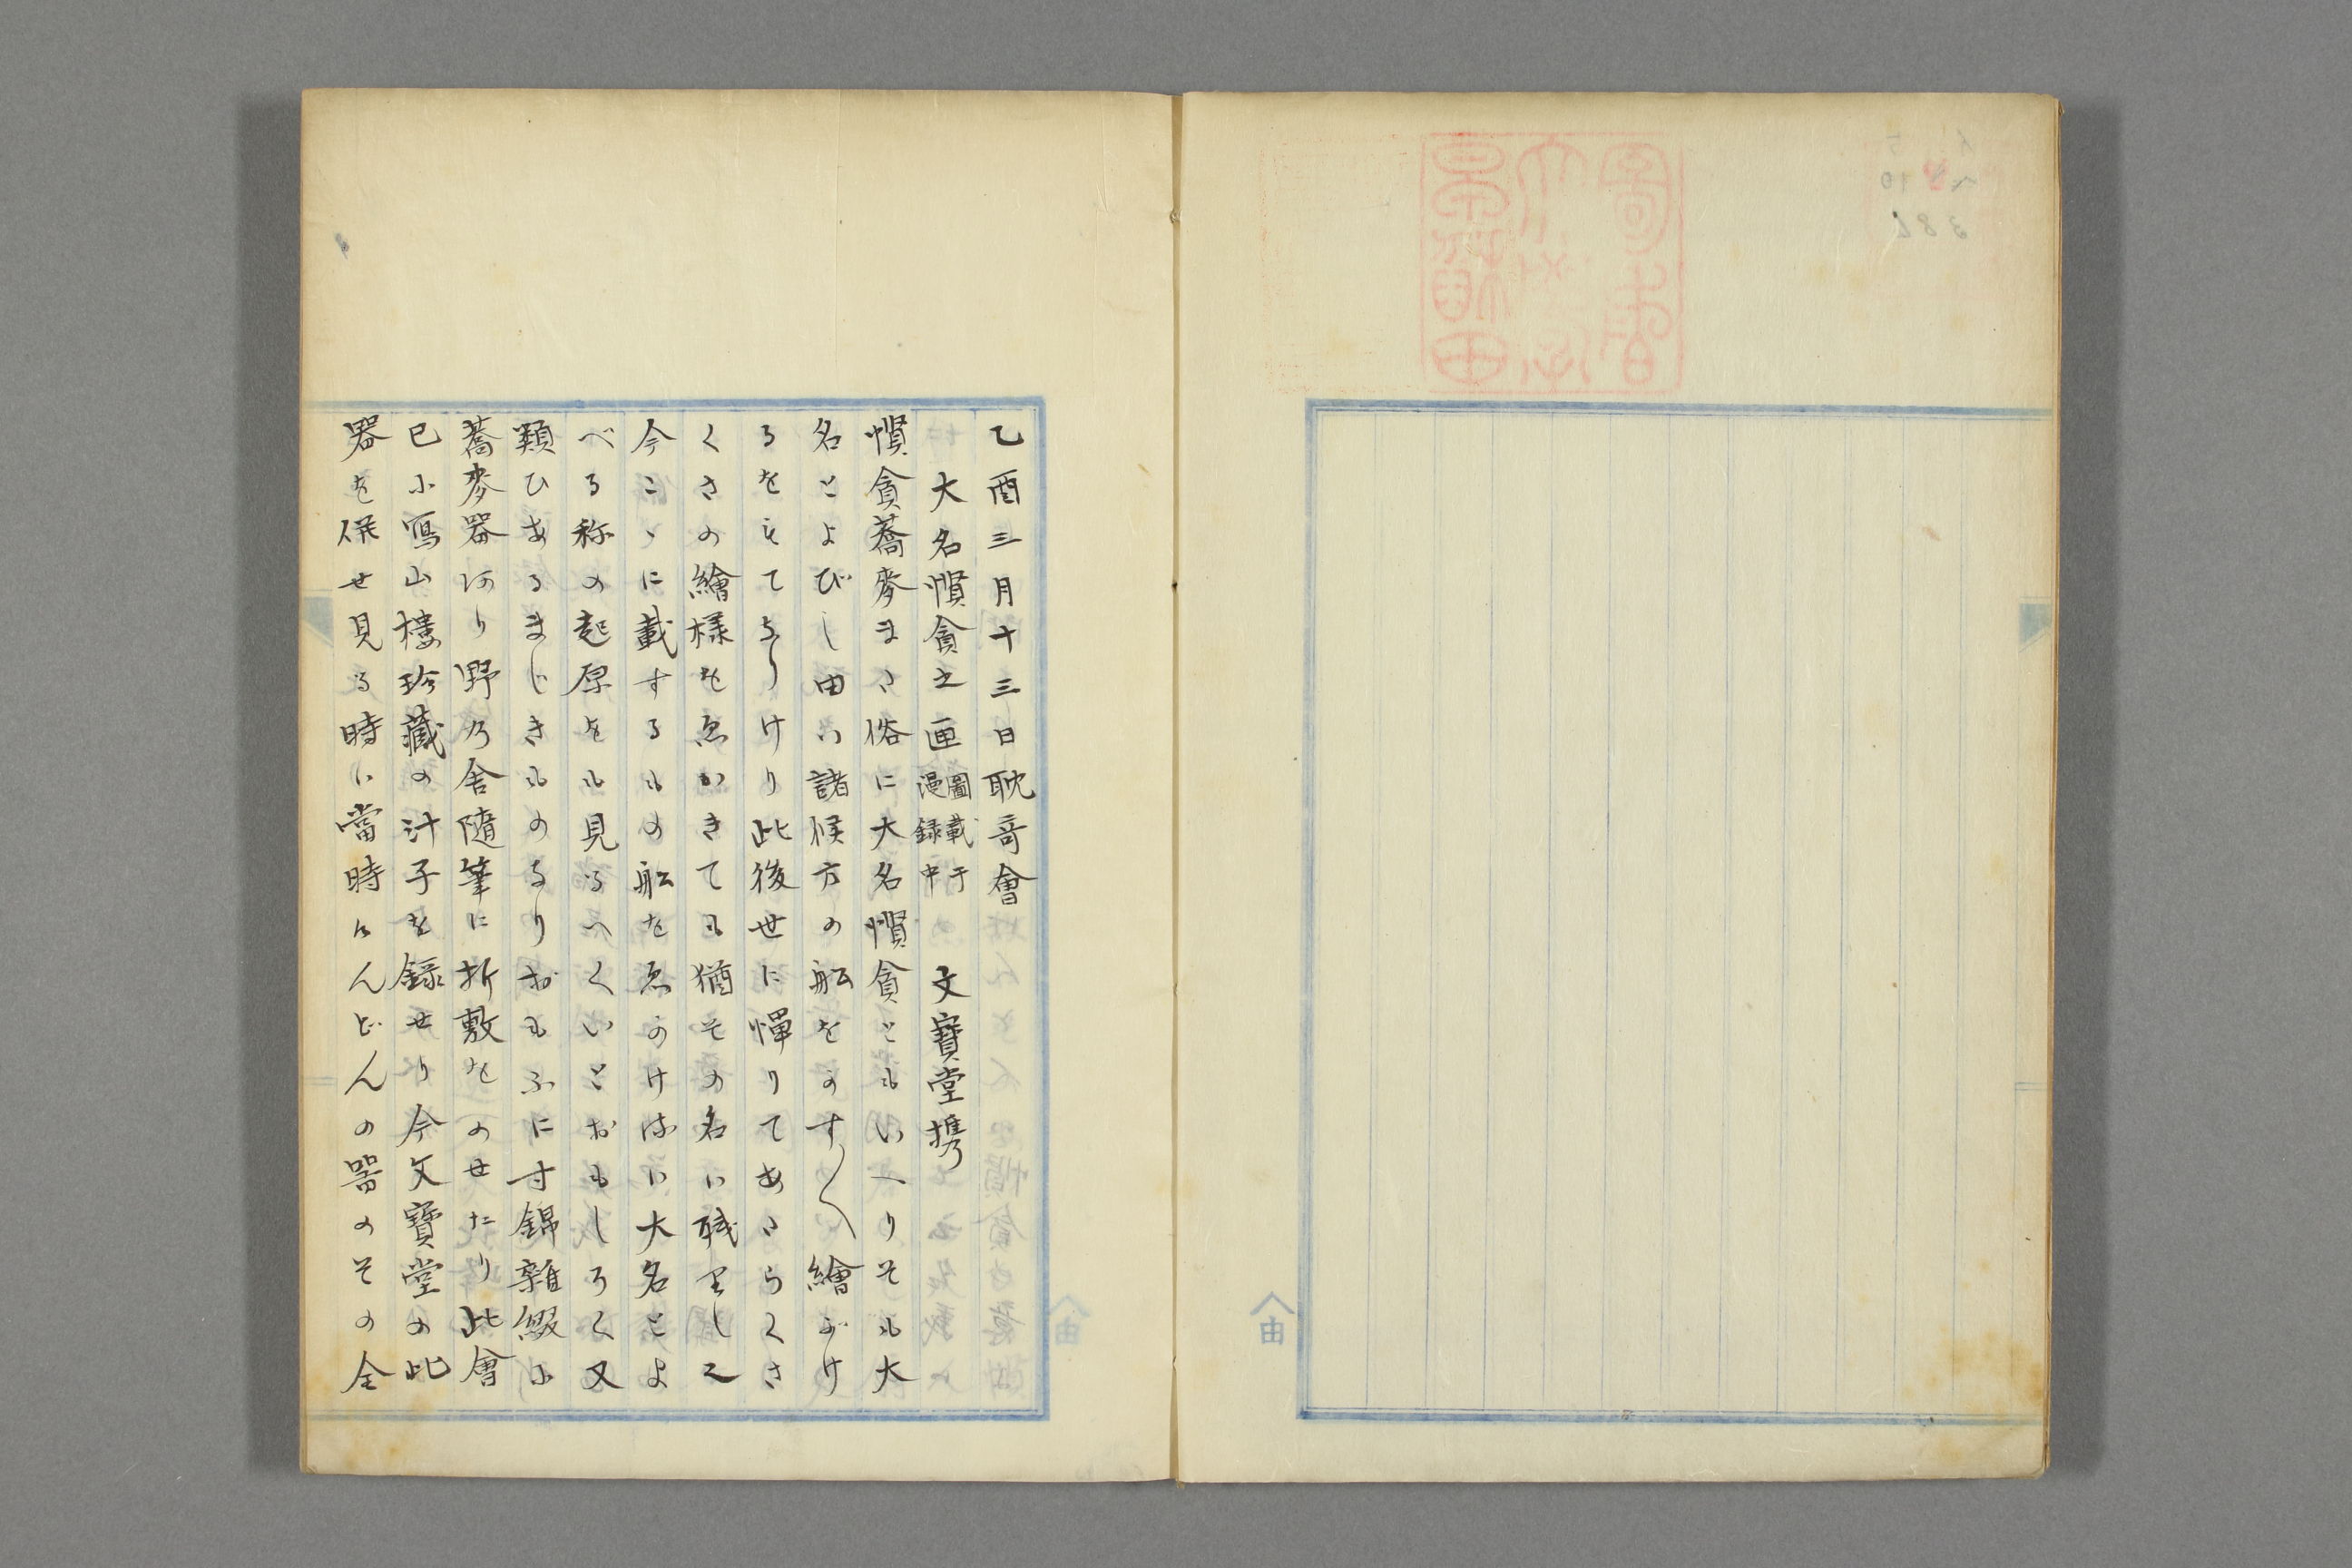 乙酉三月十三日耽奇會
大名慳貪之画 圖載于漫録中 文寶堂携
慳貪蕎麥また俗に大名慳貪ともいへりそも大
名とよびし由ハ諸侯方の舩をのす〳〵繪がけ
るをもてなりけり此後世に憚りてあたらくさ
くさの繪様をゑがきても猶その名ハ残りし也
今こゝに載するもの舩をゑのけはハ大名とよ
べる称の起原をも見るへくいとおもしろく又
類ひあるまじきものなりおもふに寸錦雜綴に
蕎麥器あり野乃舎隨筆に折敷をのせたり此會
已に寫山樓珍藏の汁子を録せり今文寶堂の此
器を併せ見る時ハ當時けんどんの器のその全